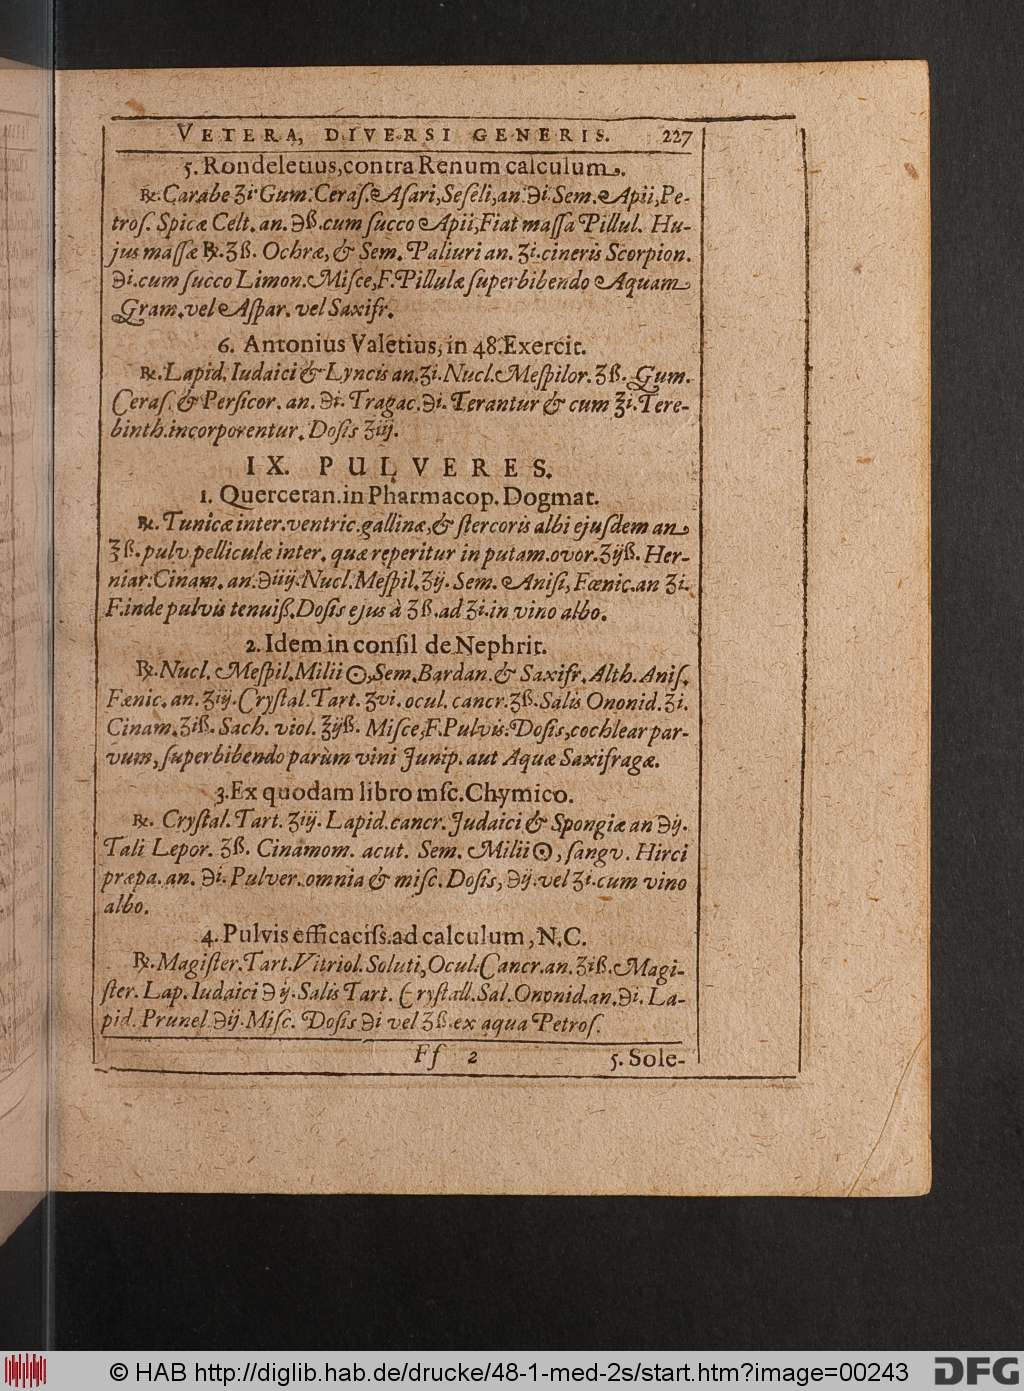 VETERA, DIVERSI GENERIS. 227
5. Rondeletius, contra Renum calculum.
℞. Carabe ʒi. Gum. Ceraſ. Aſari, Seſeli, an. ℈i. Sem. Apii, Pe-
troſ. Spicæ Celt. an. ℈ß. cum ſucco Apii, Fiat maſſa Pillul. Hu-
jus maſſæ ℞. ʒß. Ochræ, & Sem. Paliuri an. ʒi. cineris Scorpion.
℈i. cum ſucco Limon. Miſce, F. Pillulæ ſuperbibendo Aquam
Gram. vel Aſpar. vel Saxifr.
6. Antonius Valetius, in 48. Exercit.
℞. Lapid. Iudaici & Lyncis an. ʒi. Nucl. Meſpilor. ʒß. Gum.
Ceraſ. & Perſicor. an. ℈i. Tragac. ℈i. Terantur & cum ʒi. Tere-
binth. incorporentur. Doſis ʒiij.
IX. PULVERES.
1. Quercetan. in Pharmacop. Dogmat.
℞. Tunicæ inter. ventric. gallinæ, & ſtercoris albi ejuſdem an
℥ß. pulv. pelliculæ inter. quæ reperitur in putam. ovor. ʒijß. Her-
niar. Cinam. an. ℈iiij. Nucl. Meſpil. ʒij. Sem. Aniſi, Fœnic. an ʒi.
F. inde pulvis tenuiß. Doſis ejus à ʒß. ad ʒi. in vino albo.
2. Idem in conſil de Nephrit.
℞. Nucl. Meſpil. Milii ☉, Sem. Bardan. & Saxifr. Alth. Aniſ.
Fœnic. an. ʒiij. Cryſtal. Tart. ʒvi. ocul. cancr. ʒß. Salis Ononid. ʒi.
Cinam. ʒiß. Sach. viol. ℥ijß. Miſce, F. Pulvis. Doſis, cochlear par-
vum, ſuperbibendo parùm vini Junip. aut Aquæ Saxifragæ.
3. Ex quodam libro mſc. Chymico.
℞. Cryſtal. Tart. ʒiij. Lapid. cancr. Judaici & Spongiæ an ℈ij.
Tali Lepor. ʒß. Cinamom. acut. Sem. Milii ☉, ſangv. Hirci
præpa. an. ℈i. Pulver. omnia & miſc. Doſis, ℈ij. vel ʒi. cum vino
albo.
4. Pulvis efficaciſs. ad calculum, N.C.
℞. Magiſter. Tart. Vitriol. Soluti, Ocul. Cancr. an. ʒiß. Magi-
ſter. Lap. Iudaici ℈ij. Salis Tart. Cryſtall. Sal. Ononid. an. ℈i. La-
pid. Prunel ℈ij. Miſc. Doſis ℈i vel ʒß. ex aqua Petroſ.
Ff 2 5. Sole-
© HAB http://diglib.hab.de/drucke/48-1-med-2s/start.htm?image=00243 DFG